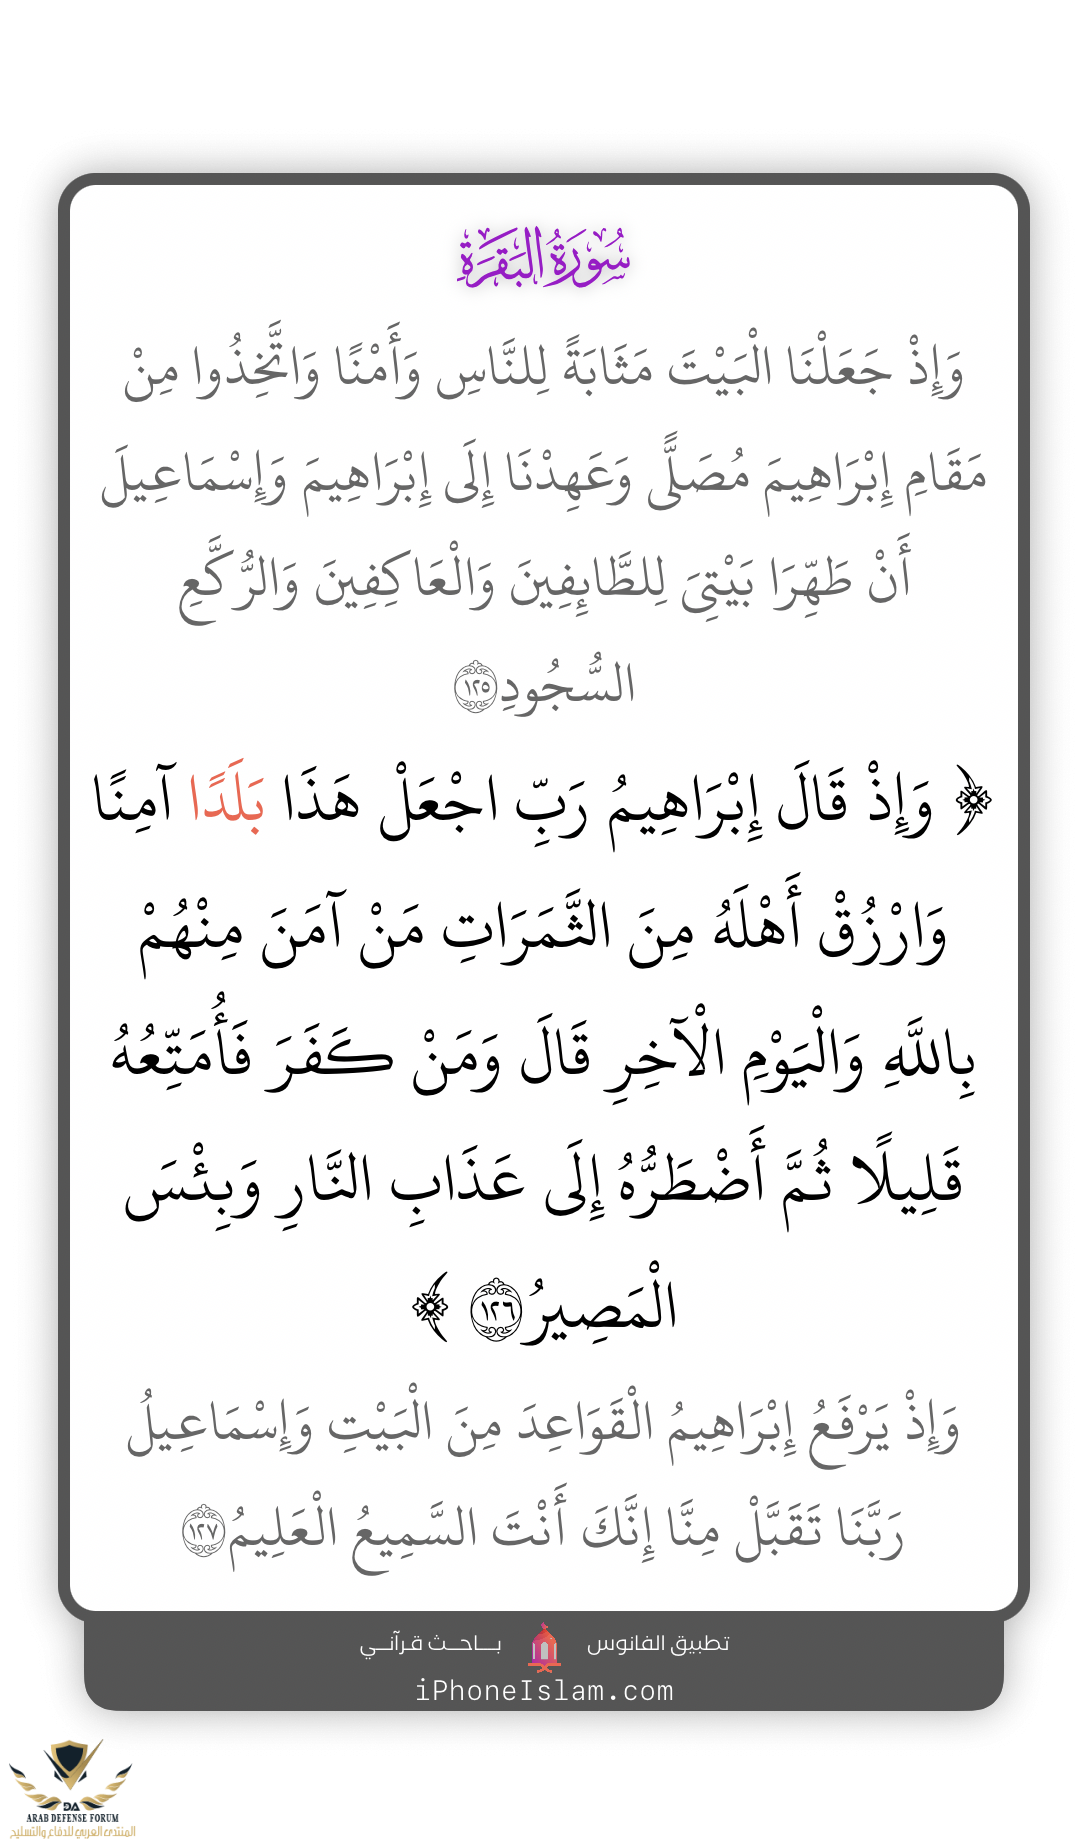 سُورَةُ البَقَرَةِ
وَإِذْ جَعَلْنَا الْبَيْتَ مَثَابَةً لِلنَّاسِ وَأَمْنًا وَاتَّخِذُوا مِنْ
مَقَامِ إِبْرَاهِيمَ مُصَلًّى وَعَهِدْنَا إِلَى إِبْرَاهِيمَ وَإِسْمَاعِيلَ
أَنْ طَهِّرَا بَيْتِيَ لِلطَّائِفِينَ وَالْعَاكِفِينَ وَالرُّكَّعِ
السُّجُودِ ١٢٥
﴿ وَإِذْ قَالَ إِبْرَاهِيمُ رَبِّ اجْعَلْ هَذَا بَلَدًا آمِنًا
وَارْزُقْ أَهْلَهُ مِنَ الثَّمَرَاتِ مَنْ آمَنَ مِنْهُمْ
بِاللَّهِ وَالْيَوْمِ الْآخِرِ قَالَ وَمَنْ كَفَرَ فَأُمَتِّعُهُ
قَلِيلًا ثُمَّ أَضْطَرُّهُ إِلَى عَذَابِ النَّارِ وَبِئْسَ
الْمَصِيرُ ١٢٦ ﴾
وَإِذْ يَرْفَعُ إِبْرَاهِيمُ الْقَوَاعِدَ مِنَ الْبَيْتِ وَإِسْمَاعِيلُ
رَبَّنَا تَقَبَّلْ مِنَّا إِنَّكَ أَنْتَ السَّمِيعُ الْعَلِيمُ ١٢٧
تطبيق الفانوس بـــاحـــث قـرآنـــي
iPhoneIslam.com
DA
ARAB DEFENSE FORUM
المنتدى العربي للدفاع والتسليح